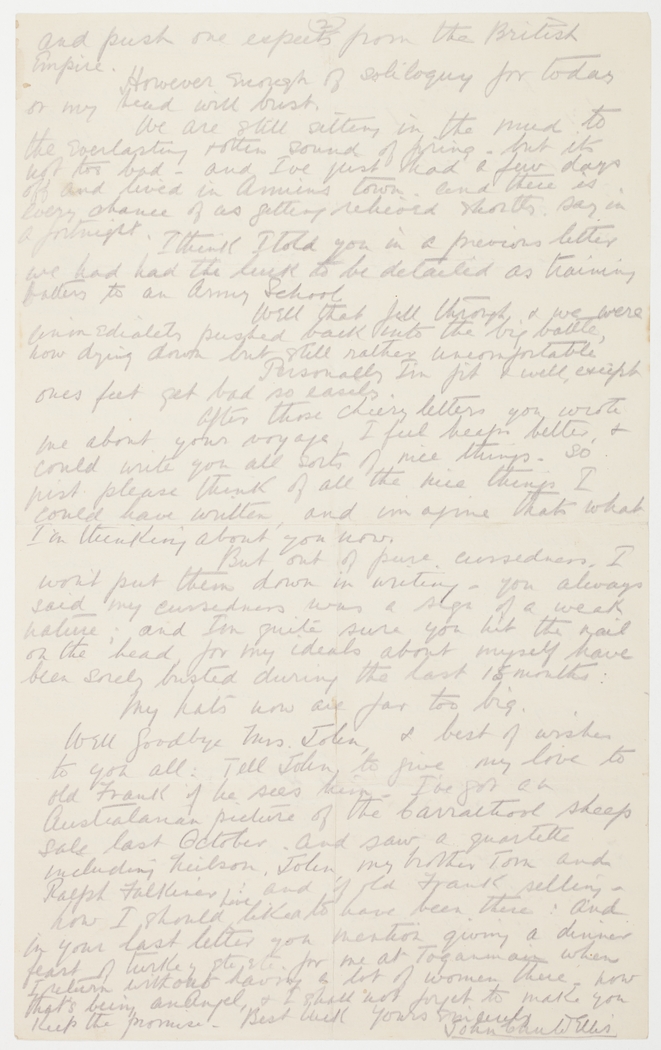 (2)
and push one expects from the British
Empire.
However enough of soliloquy for today
or my head will bust.
We are still sitting in the mud to
the everlasting rotten sound of firing - but its
not too bad - and I've just had a few days
off and lived in Amiens town. and there is
every chance of us getting relieved shortly. say in
a fortnight.
I think I told you in a previous letter
we had had the luck to be detailed as training
batters to an Army School.
Well that fell through, & we were
immediately pushed back into the big battle,
now dying down but still rather uncomfortable
Personally I'm fit & well, except
ones feet get bad so easily.
After those cheery letters you wrote
me about your voyage, I feel heaps better, &
could write you all sorts of nice things. So
just please think of all the nice things I
could have written, and imagine thats what
I'm thinking about you now.
But out of pure cursedness, I
wont put them down in writing - you always
said my cursedness was a sign of a weak
nature; and I'm quite sure you hit the nail
on the head for my ideals about myself have
been sorely busted during the last 18 months:
My hats now are far too big.
Well Goodbye Mrs. John, & best of wishes
to you all: Tell John, to give my love to
old Frank if he sees him. I've got an
Australasian picture of the Carrathool sheep
sale last October. and saw a quartette
including Neilson, John, my brother Tom and
Ralph Falkiner; and of old Frank selling -
how I should have liked to have been there: And
in your last letter you mention giving a dinner
feast of turkey etc etc. for me at Toganmain when
I return without having a lot of women there. now
that's being an angel, & I shall not forget to make you
keep the promise. - Best luck Yours Sincerely
John